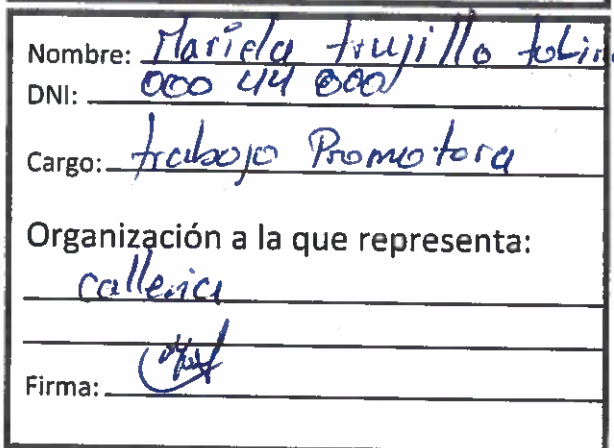 Nombre: Mariela trujillo tolin
DNI: 000 44 000
Cargo: trabajo Promotora
Organización a la que representa:
calleria
Firma: